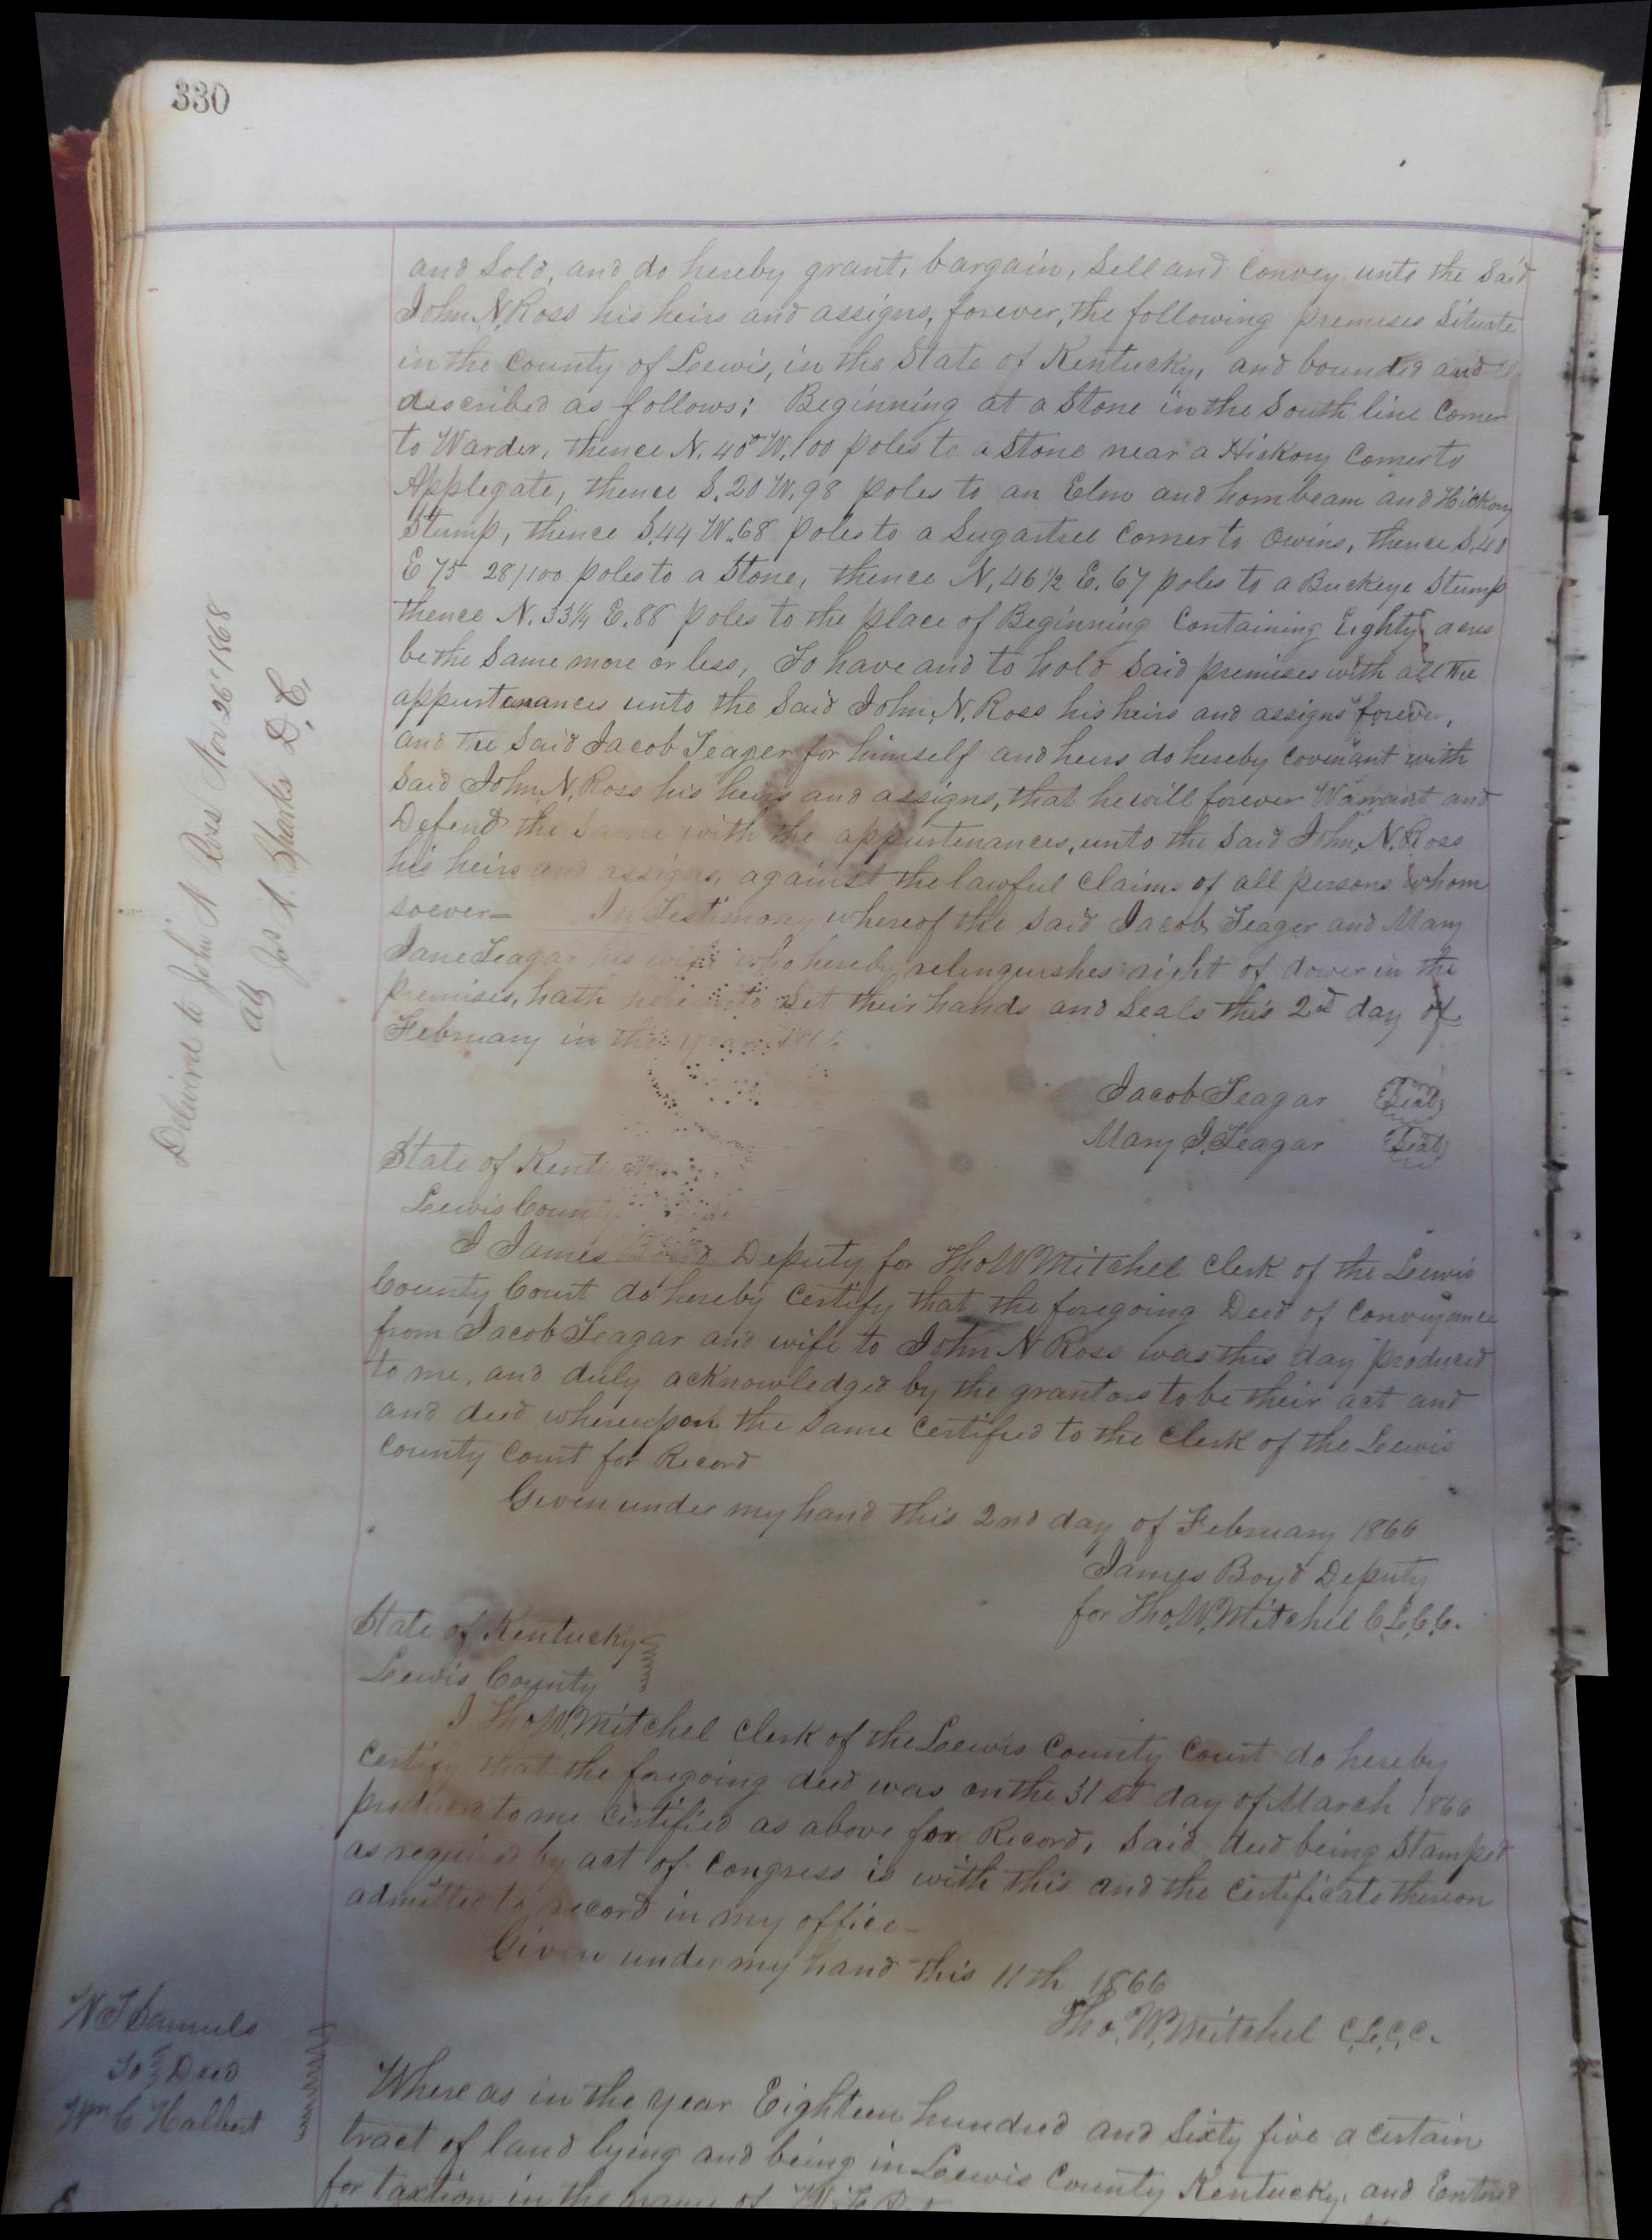 330
and Sold, and do hereby grant, bargain, Sell and Convey unto the Said
John N. Ross his heirs and assigns, forever, the following premises Situate
in the County of Leewis, in the State of Kentucky, and bounded and
described as follows: Beginning at a Stone in the South line Corner
to Warder, thence N. 40° W. 100 poles to a Stone near a Hickory Corner to
Applegate, thence S. 20 W. 98 poles to an Elm and hornbeam and Hickory
Stump, thence S. 44 W. 68 poles to a Sugartree Corner to Owins, thence S. 40
E 75 28/100 poles to a Stone, thence N. 46 1/2 E. 67 poles to a Buckeye Stump
thence N. 33 1/4 E. 88 poles to the place of Beginning Containing Eighty acres
be the Same more or less, To have and to hold Said premises with all the
appurtenances unto the Said John N. Ross his heirs and assigns forever,
and the Said Jacob Teager for himself and heirs do hereby covenant with
Said John N. Ross his heirs and assigns, that he will forever Warrant and
Defend the Same with the appurtenances, unto the Said John N. Ross
his heirs and assigns, against the lawful Claims of all persons whom
soever— In Testimony whereof the Said Jacob Teager and Mary
Jane Teagar his wife who hereby relinquishes right of dower in the
premises, hath hereunto Set their hands and Seals this 2nd day of
February in the year 186
Jacob Teagar Seal
Mary J. Teagar Seal
State of Kent
Leewis Count
I James Boyd Deputy for Tho W Mitchel Clerk of the Leewis
County Court do hereby Certify that the foregoing Deed of Conveyance
from Jacob Teagar and wife to John N Ross was this day produced
to me, and duly acknowledged by the grantors to be their act and
and deed whereupon the Same Certified to the Clerk of the Leewis
County Court for Record
Given under my hand this 2nd day of February 1866
James Boyd Deputy
for Tho. W. Mitchel C.L.C.C.
State of Kentucky
Leewis County
I Tho W. Mitchel Clerk of the Leewis County Court do hereby
Certify that the foregoing deed was on the 31st day of March 1866
produced to me Certified as above for Record, Said deed being Stamped
as required by act of Congress is with this and the Certificate thereon
admitted to record in my office—
Given under my hand this 11th 1866
Tho. W. Mitchel C.L.C.C.
Where as in the year Eighteen hundred and Sixty five a certain
tract of land lying and being in Leewis County Kentucky, and Entered
for taxtion in the name of
Delivered to John N Ross Nov 26th 1868
Att Jas A. Sparks D.C.
W T Samuels
To Deed
Wm C Halbert